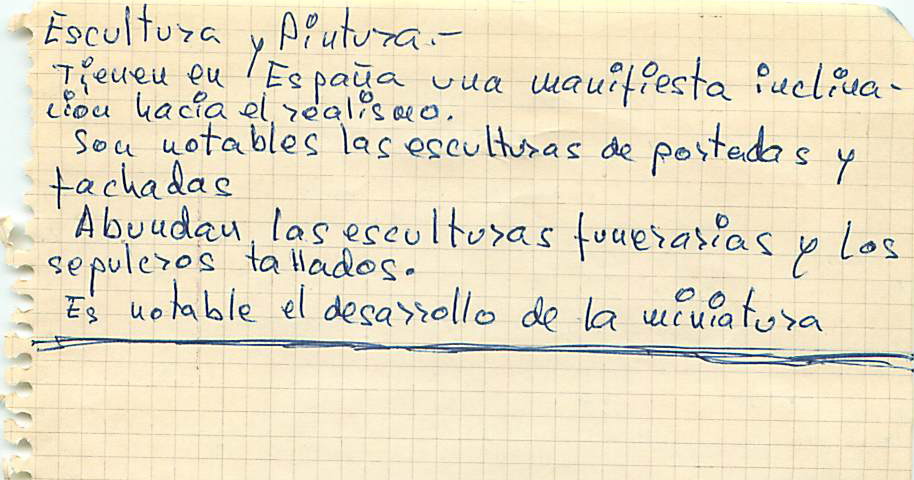 Escultura y Pintura.-
Tienen en España una manifiesta inclina-
ción hacia el realismo.
Son notables las esculturas de portadas y
fachadas
Abundan las esculturas funerarias y los
sepulcros tallados.
Es notable el desarrollo de la miniatura